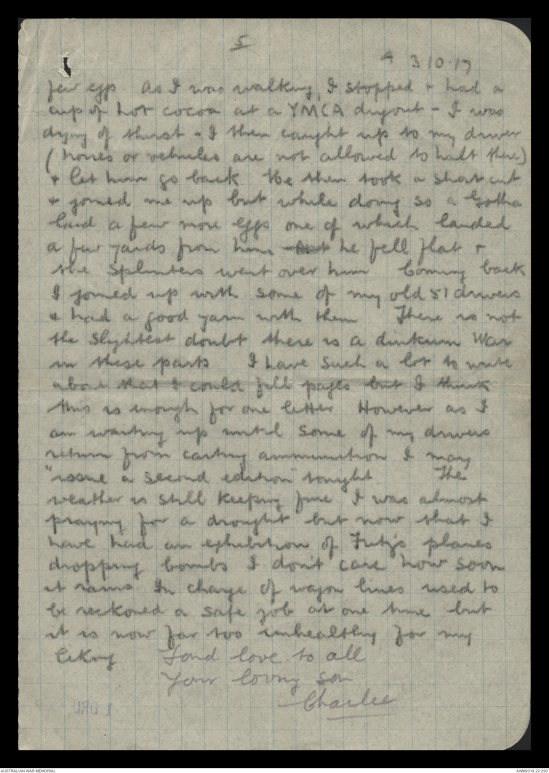 5
4 3/10/17
few eggs As I was walking, I stopped & had a
cup of hot cocoa at a YMCA dugout – I was
dying of thirst – I then caught up to my driver
(horses or vehicles are not allowed to halt there)
& let him go back He then took a short cut
& joined me up but while doing so a Gotha
laid a few more eggs one of which landed
a few yards from him, he fell flat &
the splinters went over him Coming back
I joined up with some of my old 51 drivers
& had a good yarn with them There is not
the slightest doubt there is a dinkum War
in these parts I have such a lot to write
about that I could fill pages but I think
this is enough for one letter However as I
am waiting up until some of my drivers
return from carting ammunition I may
"issue a second edition" tonight The
weather is still keeping fine I was almost
praying for a drought but now that I
have had an exhibition of Fritz's planes
dropping bombs I don't care how soon
it rains In charge of wagon lines used to
be reckoned a safe job at one time but
it is now far too unhealthy for my
liking Fond love to all
Your loving son
Charlie
1 DRL
AUSTRALIAN WAR MEMORIAL